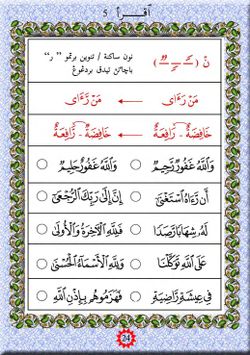 اقرأ 5
نْ ( ـًـ ـٍـ ـٌـ ) نون ساكنة / تنوين برتمو " ر "
باچاٴن تيدق بردڠوڠ
مَن رَّءَاى ← مَنْ رَءَاى
خَافِضَةٌ رَّافِعَةٌ ← خَافِضَةٌ رَافِعَةٌ
وَٱللَّهُ غَفُورٌ رَّحِيمٌ ○ وَٱللَّهُ غَفُورٌ حَلِيمٌ ○
أَن رَّءَاهُ ٱسْتَغْنَىٰ ○ إِنَّ إِلَىٰ رَبِّكَ ٱلرُّجْعَىٰ ○
لَهُۥ شِهَابًا رَّصَدًا ○ فَلِلَّهِ ٱلْآخِرَةُ وَٱلْأُولَىٰ ○
عَلَى ٱللَّهِ تَوَكَّلْنَا ○ وَلِلَّهِ ٱلْأَسْمَاءُ ٱلْحُسْنَىٰ ○
فِي عِيشَةٍ رَّاضِيَةٍ ○ فَهَزَمُوهُم بِإِذْنِ ٱللَّهِ ○
24